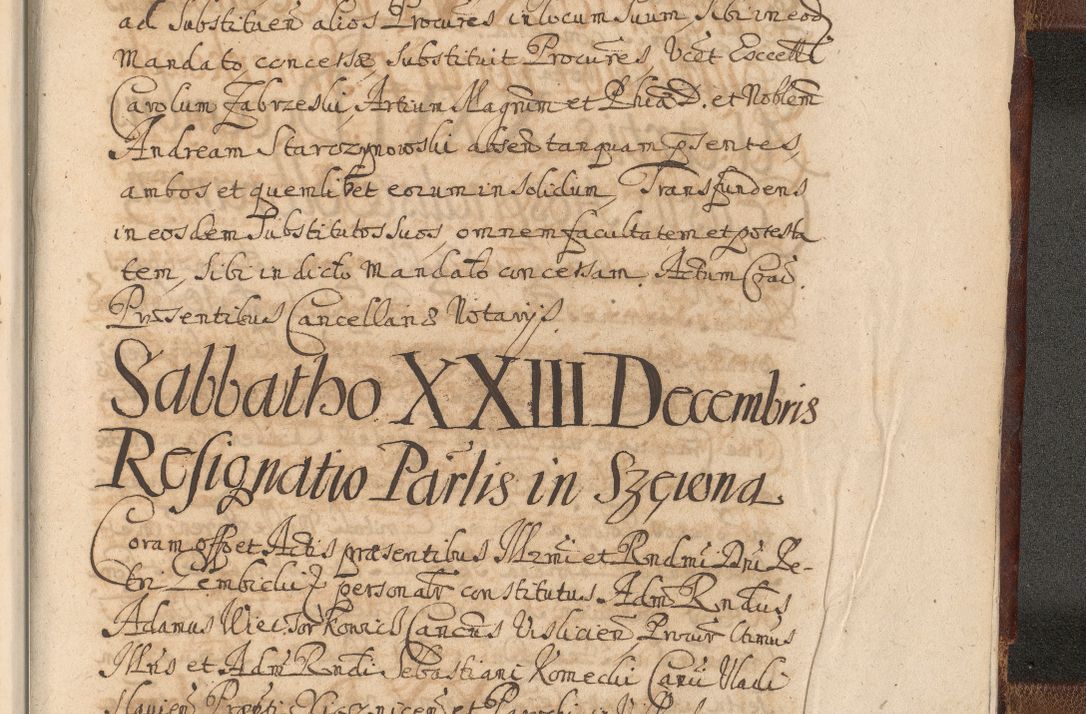 ad Substituen̄ alios Procūres in locum suum sibi in eod
Mandato concessæ substituit Procūres, Vcēt Excell
Carolum Zabrzeski, Artium Magrūm et Phīa D. et Noblem̄
Andream Starozynowski absen̄ tanquam p̄sentes,
ambos et quemlibet eorum in solidum, Transfundens
in eosdem Substitutos suos, omnem facultatem et potesta
tem, sibi in dicto Mandato concessam. Actum Crac̄.
Præsentibus Cancellariæ Notarijs.
Sabbatho XXIII Decembris
Resignatio Pārlis in Szęiwna.
Coram offō et Actis præsentibus Illr̄mi et Rndm̄i Dn̄i Pe-
tri Gembicki personalr̄ constitutus Adm̄ Rndūs
Adamus Wiec.Sorkowicz Cancūs Visliciēn Procūr Ctimus
Illr̄is et Adm̄ Rndi Sebastiani Komecki Canci Uladi
slavien̄ Præpti